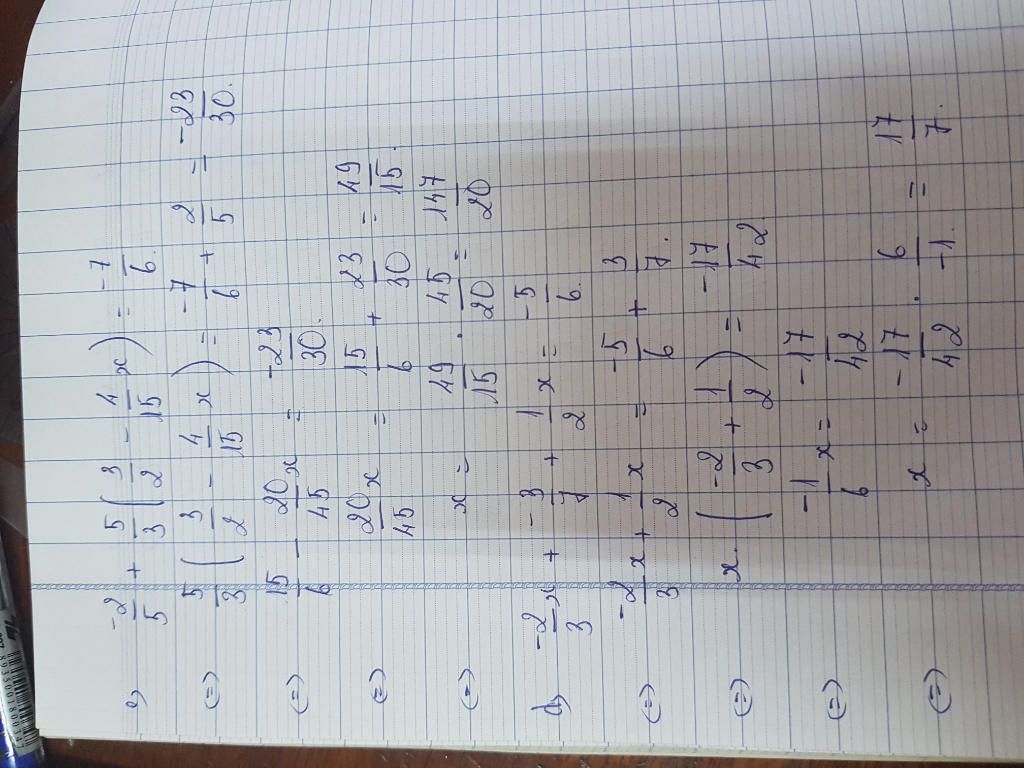 c) -2/5 + 5/3 (3/2 - 4/15 x) = -7/6.
(=) 5/3 (3/2 - 4/15 x) = -7/6 + 2/5 = -23/30.
(=) 15/6 - 20/45 x = -23/30.
(=) 20/45 x = 15/6 + 23/30 = 49/15.
(=) x = 49/15 . 45/20 = 147/20
d) -2/3 x + -3/7 + 1/2 x = -5/6.
(=) -2/3 x + 1/2 x = -5/6 + 3/7.
(=) x. (-2/3 + 1/2) = -17/42.
(=) -1/6 x = -17/42
(=) x = -17/42 . 6/-1. = 17/7.